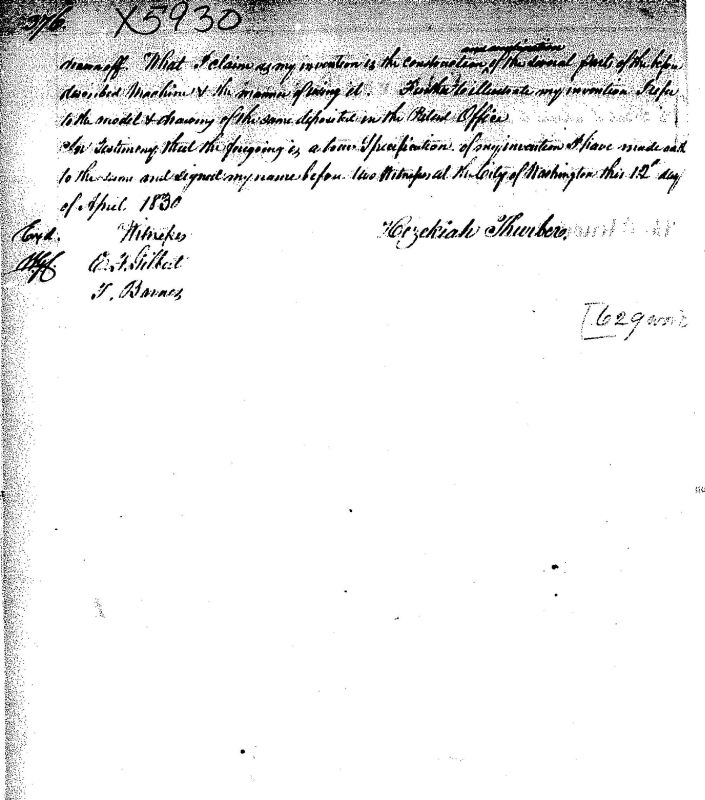 376 X5930
and application
What I claim as my invention is the construction of the several parts of the before
described Machine & the manner of using it. Further to illustrate my invention I refer
to the model & drawing of the same deposited in the Patent Office
In Testimony that the foregoing is a true Specification of my invention I have made oath
to the same and signed my name before two Witnesses at the City of Washington this 12th day
of April 1830
Exd. Witnesses Hezekiah Thurber.
Gilbert
T. Barnes
[629 words